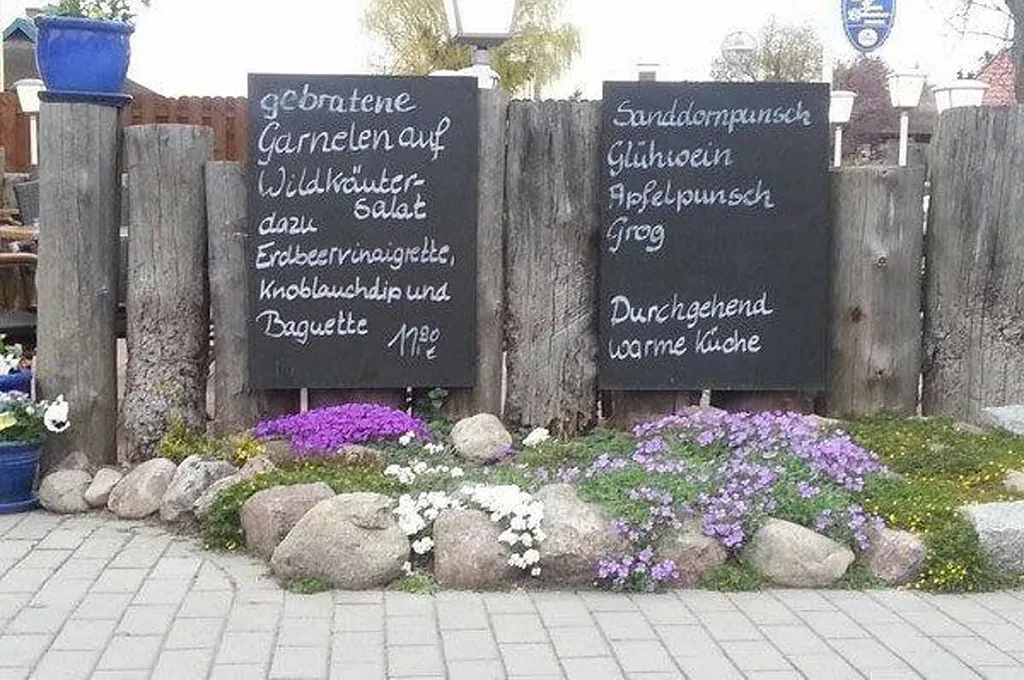 gebratene
Garnelen auf
Wildkräuter-
Salat
dazu
Erdbeervinaigrette,
Knoblauchdip und
Baguette 11,90 €
Sanddornpunsch
Glühwein
Apfelpunsch
Grog
Durchgehend
warme Küche